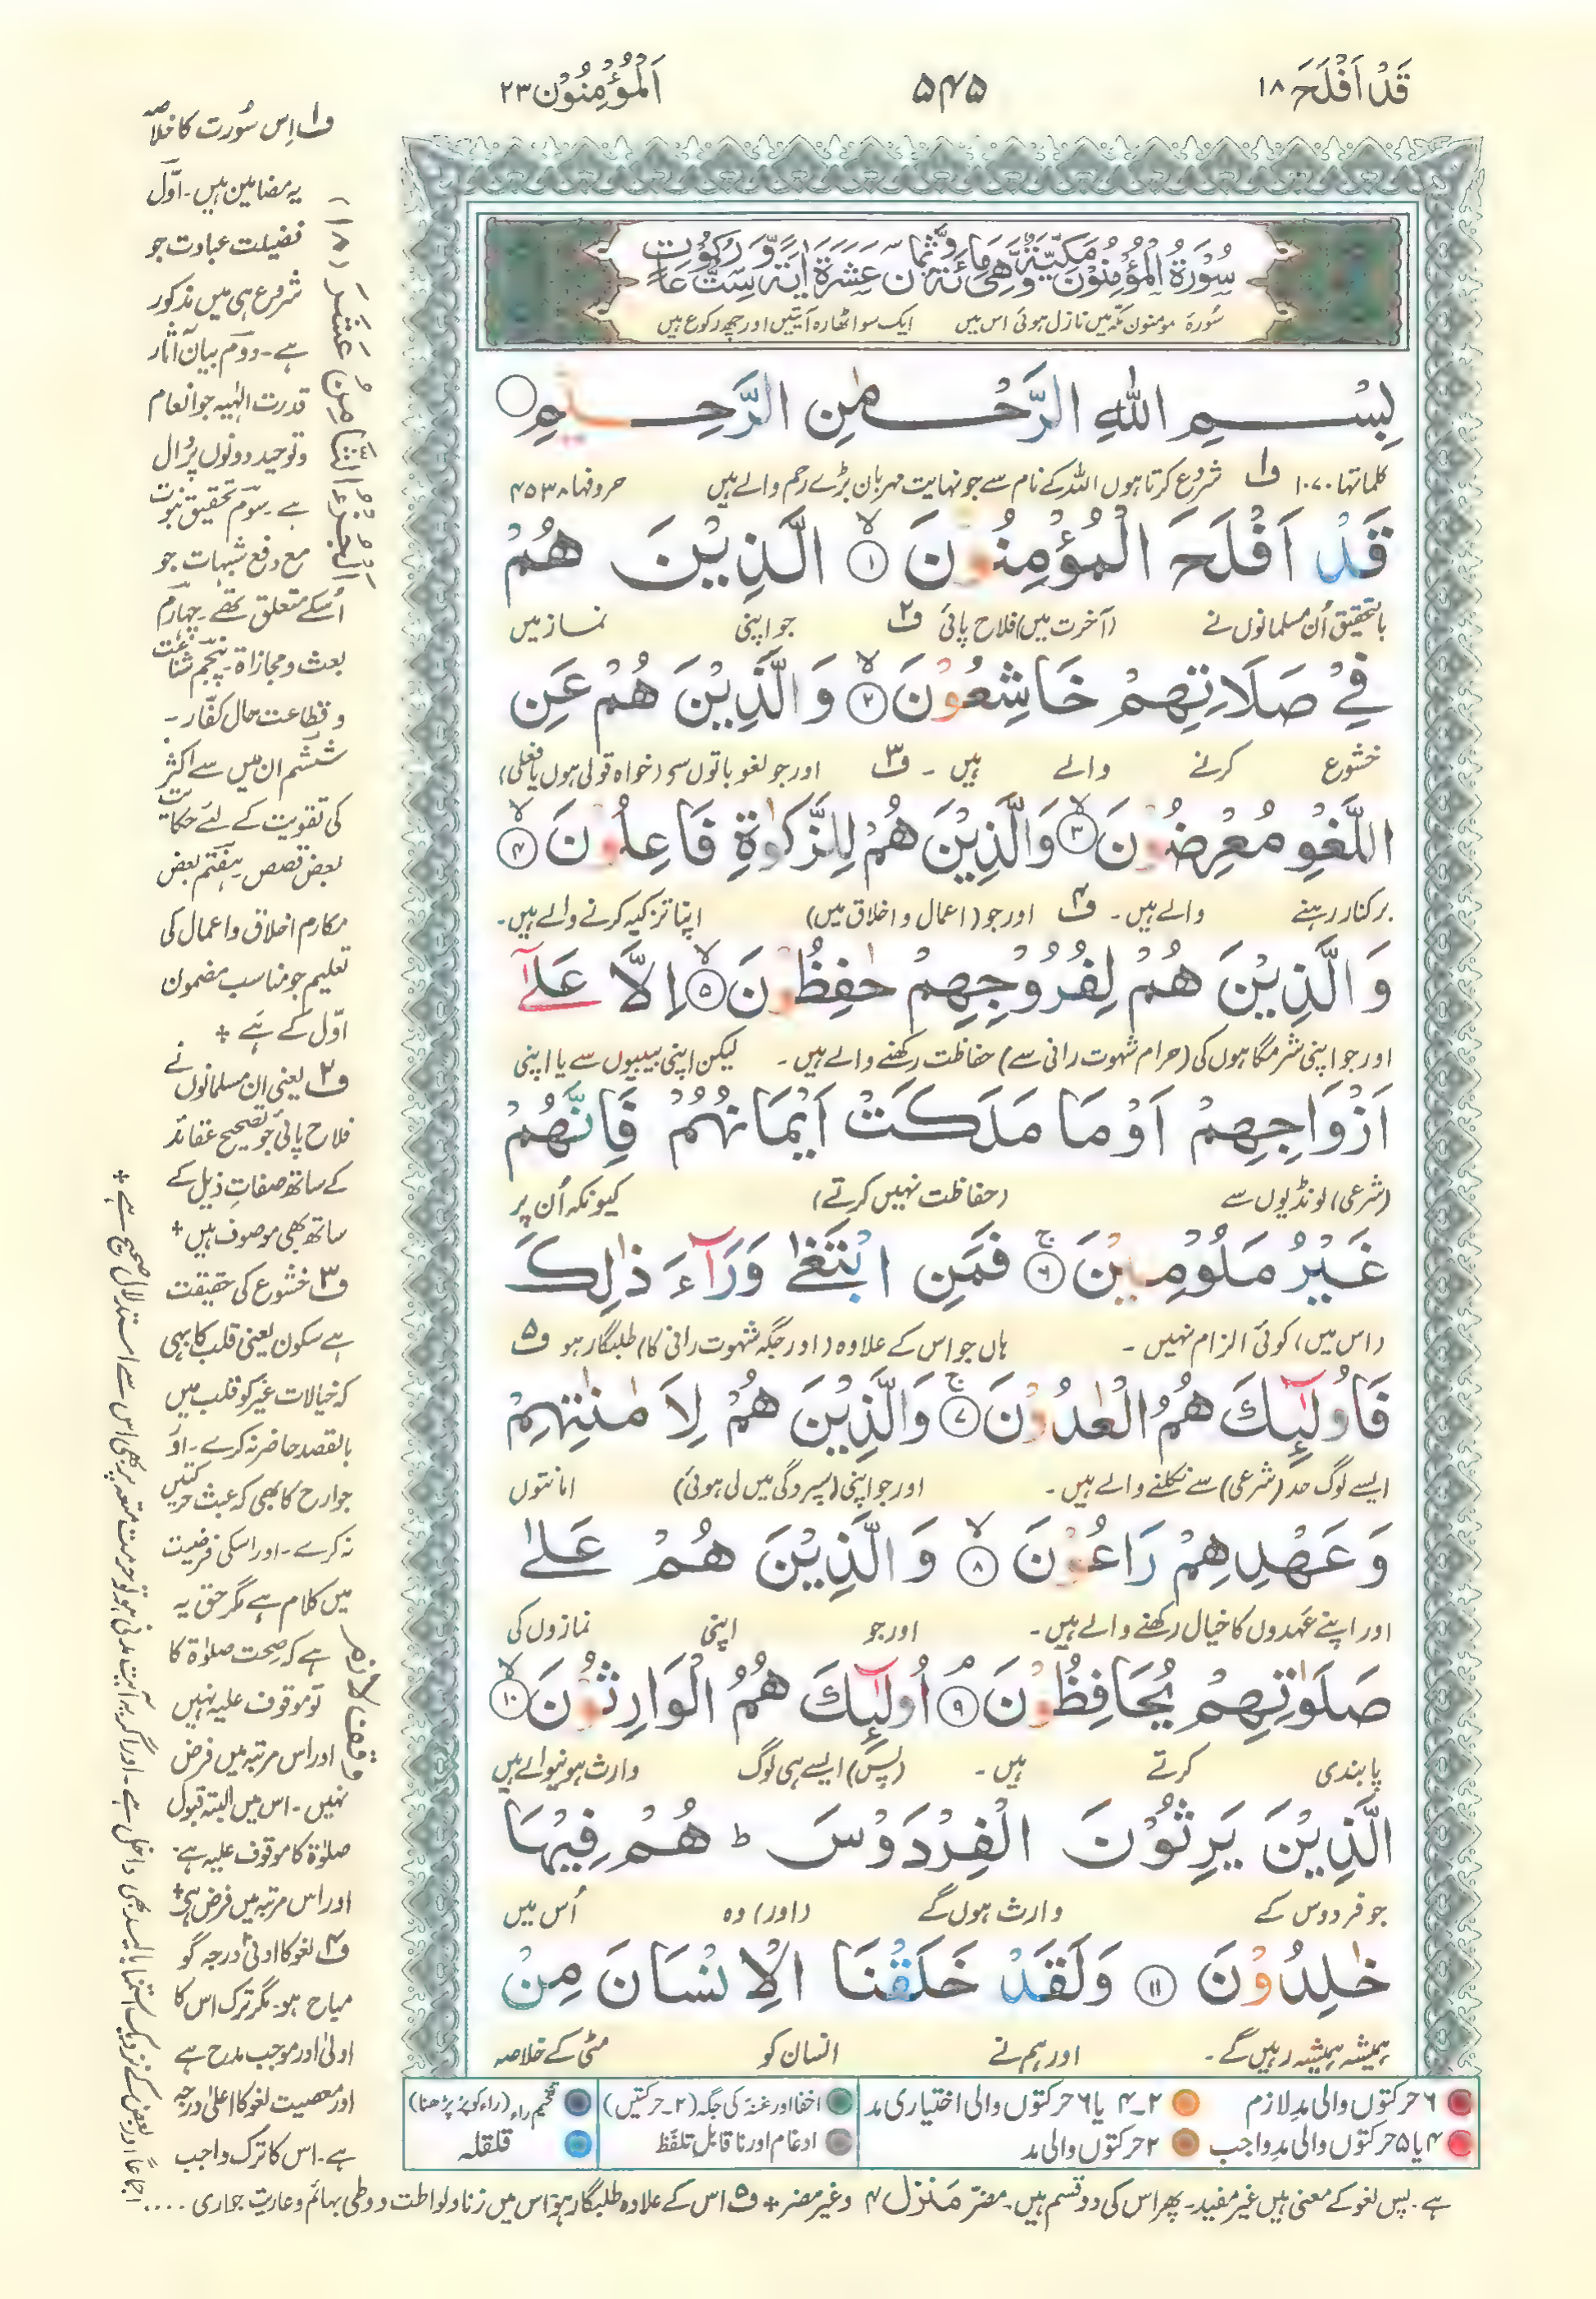 قَدْ اَفْلَحَ ١٨
۵۴۵
اَلْمُؤْمِنُوْن ٢٣
سُوْرَةُ الْمُؤْمِنُوْنَ مَكِّيَّةٌ وَّهِیَ مِائَةٌ وَّثَمَانَ عَشَرَةَ اٰيَةً وَّسِتُّ رُكُوْعَاتٍ
سُورۃ مومنون مکہ میں نازل ہوئی اس میں ایک سو اٹھارہ آیتیں اور چھ رکوع ہیں
بِسْمِ اللّٰهِ الرَّحْمٰنِ الرَّحِيْمِ
کلماتہا ١٠٧٠ ف١ شروع کرتا ہوں اللہ کے نام سے جو نہایت مہربان بڑے رحم والے ہیں حروفہا ۴۵۳۸
قَدْ اَفْلَحَ الْمُؤْمِنُوْنَ ۙ﴿١﴾ الَّذِيْنَ هُمْ
بالتحقیق اُن مسلمانوں نے (آخرت میں) فلاح پائی ف۲ جو اپنی نماز میں
فِيْ صَلَاتِهِمْ خَاشِعُوْنَ ۙ﴿٢﴾ وَالَّذِيْنَ هُمْ عَنِ
خشوع کرنے والے ہیں ۔ ف۳ اور جو لغو باتوں سے (خواہ قولی ہوں یا فعلی)
اللَّغْوِ مُعْرِضُوْنَ ۙ﴿٣﴾ وَالَّذِيْنَ هُمْ لِلزَّكٰوةِ فَاعِلُوْنَ ۙ﴿۴﴾
برکنار رہنے والے ہیں ۔ ف۴ اور جو (اعمال و اخلاق میں) اپنا تزکیہ کرنے والے ہیں ۔
وَالَّذِيْنَ هُمْ لِفُرُوْجِهِمْ حٰفِظُوْنَ ۙ﴿۵﴾ اِلَّا عَلٰٓى
اور جو اپنی شرمگاہوں کی (حرام شہوت رانی سے) حفاظت رکھنے والے ہیں ۔ لیکن اپنی بیبیوں سے یا اپنی
اَزْوَاجِهِمْ اَوْ مَا مَلَكَتْ اَيْمَانُهُمْ فَاِنَّهُمْ
(شرعی) لونڈیوں سے (حفاظت نہیں کرتے) کیونکہ اُن پر
غَيْرُ مَلُوْمِيْنَ ۚ﴿۶﴾ فَمَنِ ابْتَغٰى وَرَآءَ ذٰلِكَ
(اس میں) کوئی الزام نہیں ۔ ہاں جو اس کے علاوہ (اور جگہ شہوت رانی کا) طلبگار ہو ف۵
فَاُولٰٓئِكَ هُمُ الْعٰدُوْنَ ۚ﴿۷﴾ وَالَّذِيْنَ هُمْ لِاَمٰنٰتِهِمْ
ایسے لوگ حد (شرعی) سے نکلنے والے ہیں ۔ اور جو اپنی (سپردگی میں لی ہوئی) امانتوں
وَعَهْدِهِمْ رَاعُوْنَ ۙ﴿۸﴾ وَالَّذِيْنَ هُمْ عَلٰى
اور اپنے عہدوں کا خیال رکھنے والے ہیں ۔ اور جو اپنی نمازوں کی
صَلَوٰتِهِمْ يُحَافِظُوْنَ ۘ﴿۹﴾ اُولٰٓئِكَ هُمُ الْوَارِثُوْنَ ۙ﴿١٠﴾
پابندی کرتے ہیں ۔ (پس) ایسے ہی لوگ وارث ہونیوالے ہیں
الَّذِيْنَ يَرِثُوْنَ الْفِرْدَوْسَ ؕ هُمْ فِيْهَا
جو فردوس کے وارث ہوں گے (اور) وہ اُس میں
خٰلِدُوْنَ ﴿١١﴾ وَلَقَدْ خَلَقْنَا الْاِنْسَانَ مِنْ
ہمیشہ ہمیشہ رہیں گے ۔ اور ہم نے انسان کو مٹی کے خلاصہ
۶ حرکتوں والی مد لازم
۲-۴ یا ۶ حرکتوں والی اختیاری مد
اخفا اور غنہ کی جگہ (۲-حرکتیں)
تفخیم راء (راء کو پُر پڑھنا)
۴ یا ۵ حرکتوں والی مد واجب
۲ حرکتوں والی مد
ادغام اور ناقابلِ تلفّظ
قلقلہ
ف۱ اِس سُورت کا خلاصہ
یہ مضامین ہیں ۔ اوّل
فضیلت عبادت جو
شروع ہی میں مذکور
ہے ۔ دوم بیان آثار
قدرت الٰہیہ جو انعام
و توحید دونوں پر دال
ہے ۔ سوم تحقیق نبوت
مع دفع شبہات جو
اُسکے متعلق تھے ۔ چہارم
بعث و مجازاۃ ۔ پنجم شناعت
و فظاعت حال کفّار ۔
ششم ان میں سے اکثر
کی تقویت کے لئے حکایت
بعض قصص ۔ ہفتم بعض
مکارم اخلاق و اعمال کی
تعلیم جو مناسب مضمون
اوّل کے ہے +
ف۲ یعنی ان مسلمانوں نے
فلاح پائی جو تصحیح عقائد
کے ساتھ صفاتِ ذیل کے
ساتھ بھی موصوف ہیں +
ف۳ خشوع کی حقیقت
ہے سکون یعنی قلب کا بھی
کہ خیالات غیر کو قلب میں
بالقصد حاضر نہ کرے ۔ اور
جوارح کا بھی کہ عبث حرکتیں
نہ کرے ۔ اور اسکی فرضیت
میں کلام ہے مگر حق یہ
ہے کہ صحت صلوٰۃ کا
تو موقوف علیہ نہیں
اور اس مرتبہ میں فرض
نہیں ۔ اس میں البتہ قبول
صلوٰۃ کا موقوف علیہ ہے ۔
اور اس مرتبہ میں فرض ہے +
ف۴ لغو کا ادنیٰ درجہ گو
مباح ہو ۔ مگر ترک اس کا
اولیٰ اور موجب مدح ہے
اور معصیت لغو کا اعلیٰ درجہ
ہے ۔ اس کا ترک واجب
ہے ۔ پس لغو کے معنی ہیں غیر مفید ۔ پھر اس کی دو قسم ہیں ۔ مضر مَنْزِل ۴ وغیر مضر + ف۵ اس کے علاوہ طلبگار ہو اس میں زنا و لواطت و وطی بہائم و عاریت جواری ....
اجماعاً اور بعض کے نزدیک استمنا بالید بھی داخل ہے ۔ اور اگر یہ آیت مدنی ہو تو حرمت متعہ پر بھی اس سے استدلال صحیح ہے +
اَلْجُزْءُ الثَّامِنُ عَشَرَ (١٨)
وقف لازم